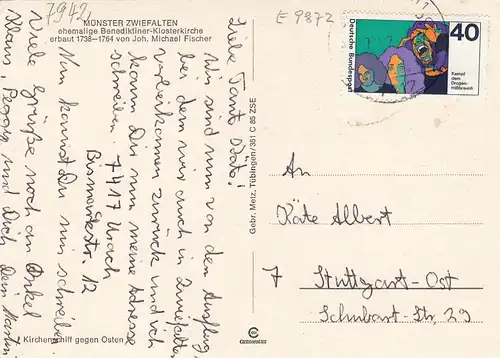 7942
MÜNSTER ZWIEFALTEN
ehemalige Benediktiner-Klosterkirche
erbaut 1738–1764 von Joh. Michael Fischer
E 9872
Deutsche Bundespost
40
Kampf
dem
Drogen-
mißbrauch
Liebe Tante Käte!
Wir sind nun von dem Ausflug,
bei dem wir auch in Zwiefalten
vorbeikamen zurück und ich
kann Dir nun meine Adresse
schreiben. 7417 Urach
Bismarkstr. 12
Nun kannst Du mir schreiben.
Viele Grüße noch an Onkel
Klaus, Peggy und Dich Dein Martin
Gebr. Metz, Tübingen/351 C 85 ZSE
An
Käte Albert
7 Stuttgart-Ost
Schubart-Str. 29
Kirchenschiff gegen Osten